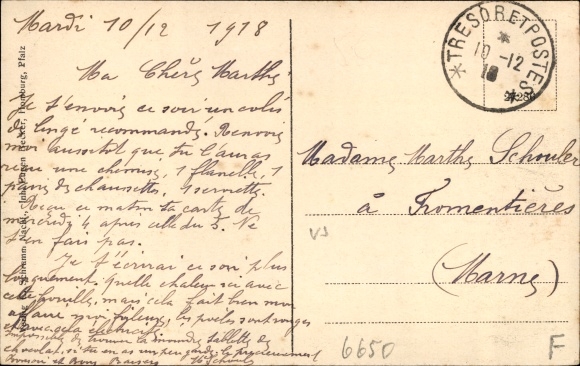 Mardi 10/12 1918
Ma Chère Marthe
Je t'envoie ce soir un colis
de linge recommandé. Renvoie
moi aussitot que tu l'auras
reçu une chemise, 1 flanelle, 1
paire de chaussettes, 1 serviette.
Reçu ce matin ta carte de
mercredi 4 après celle du 5. Ne
t'en fais pas.
Je t'écrirai ce soir plus
longuement, quelle chaleur ici avec
cette houille, mais cela fait bien mon
affaire moi frileux, les poêles sont rouges
et avec cela électricité
Impossible de trouver la moindre tablette de
chocolat, si tu en as un peu garde le
Bons Baisers
TRESOR ET POSTES
10 -12
18
Madame Marthe Schouler
à Fromentières
(Marne)
6650
F